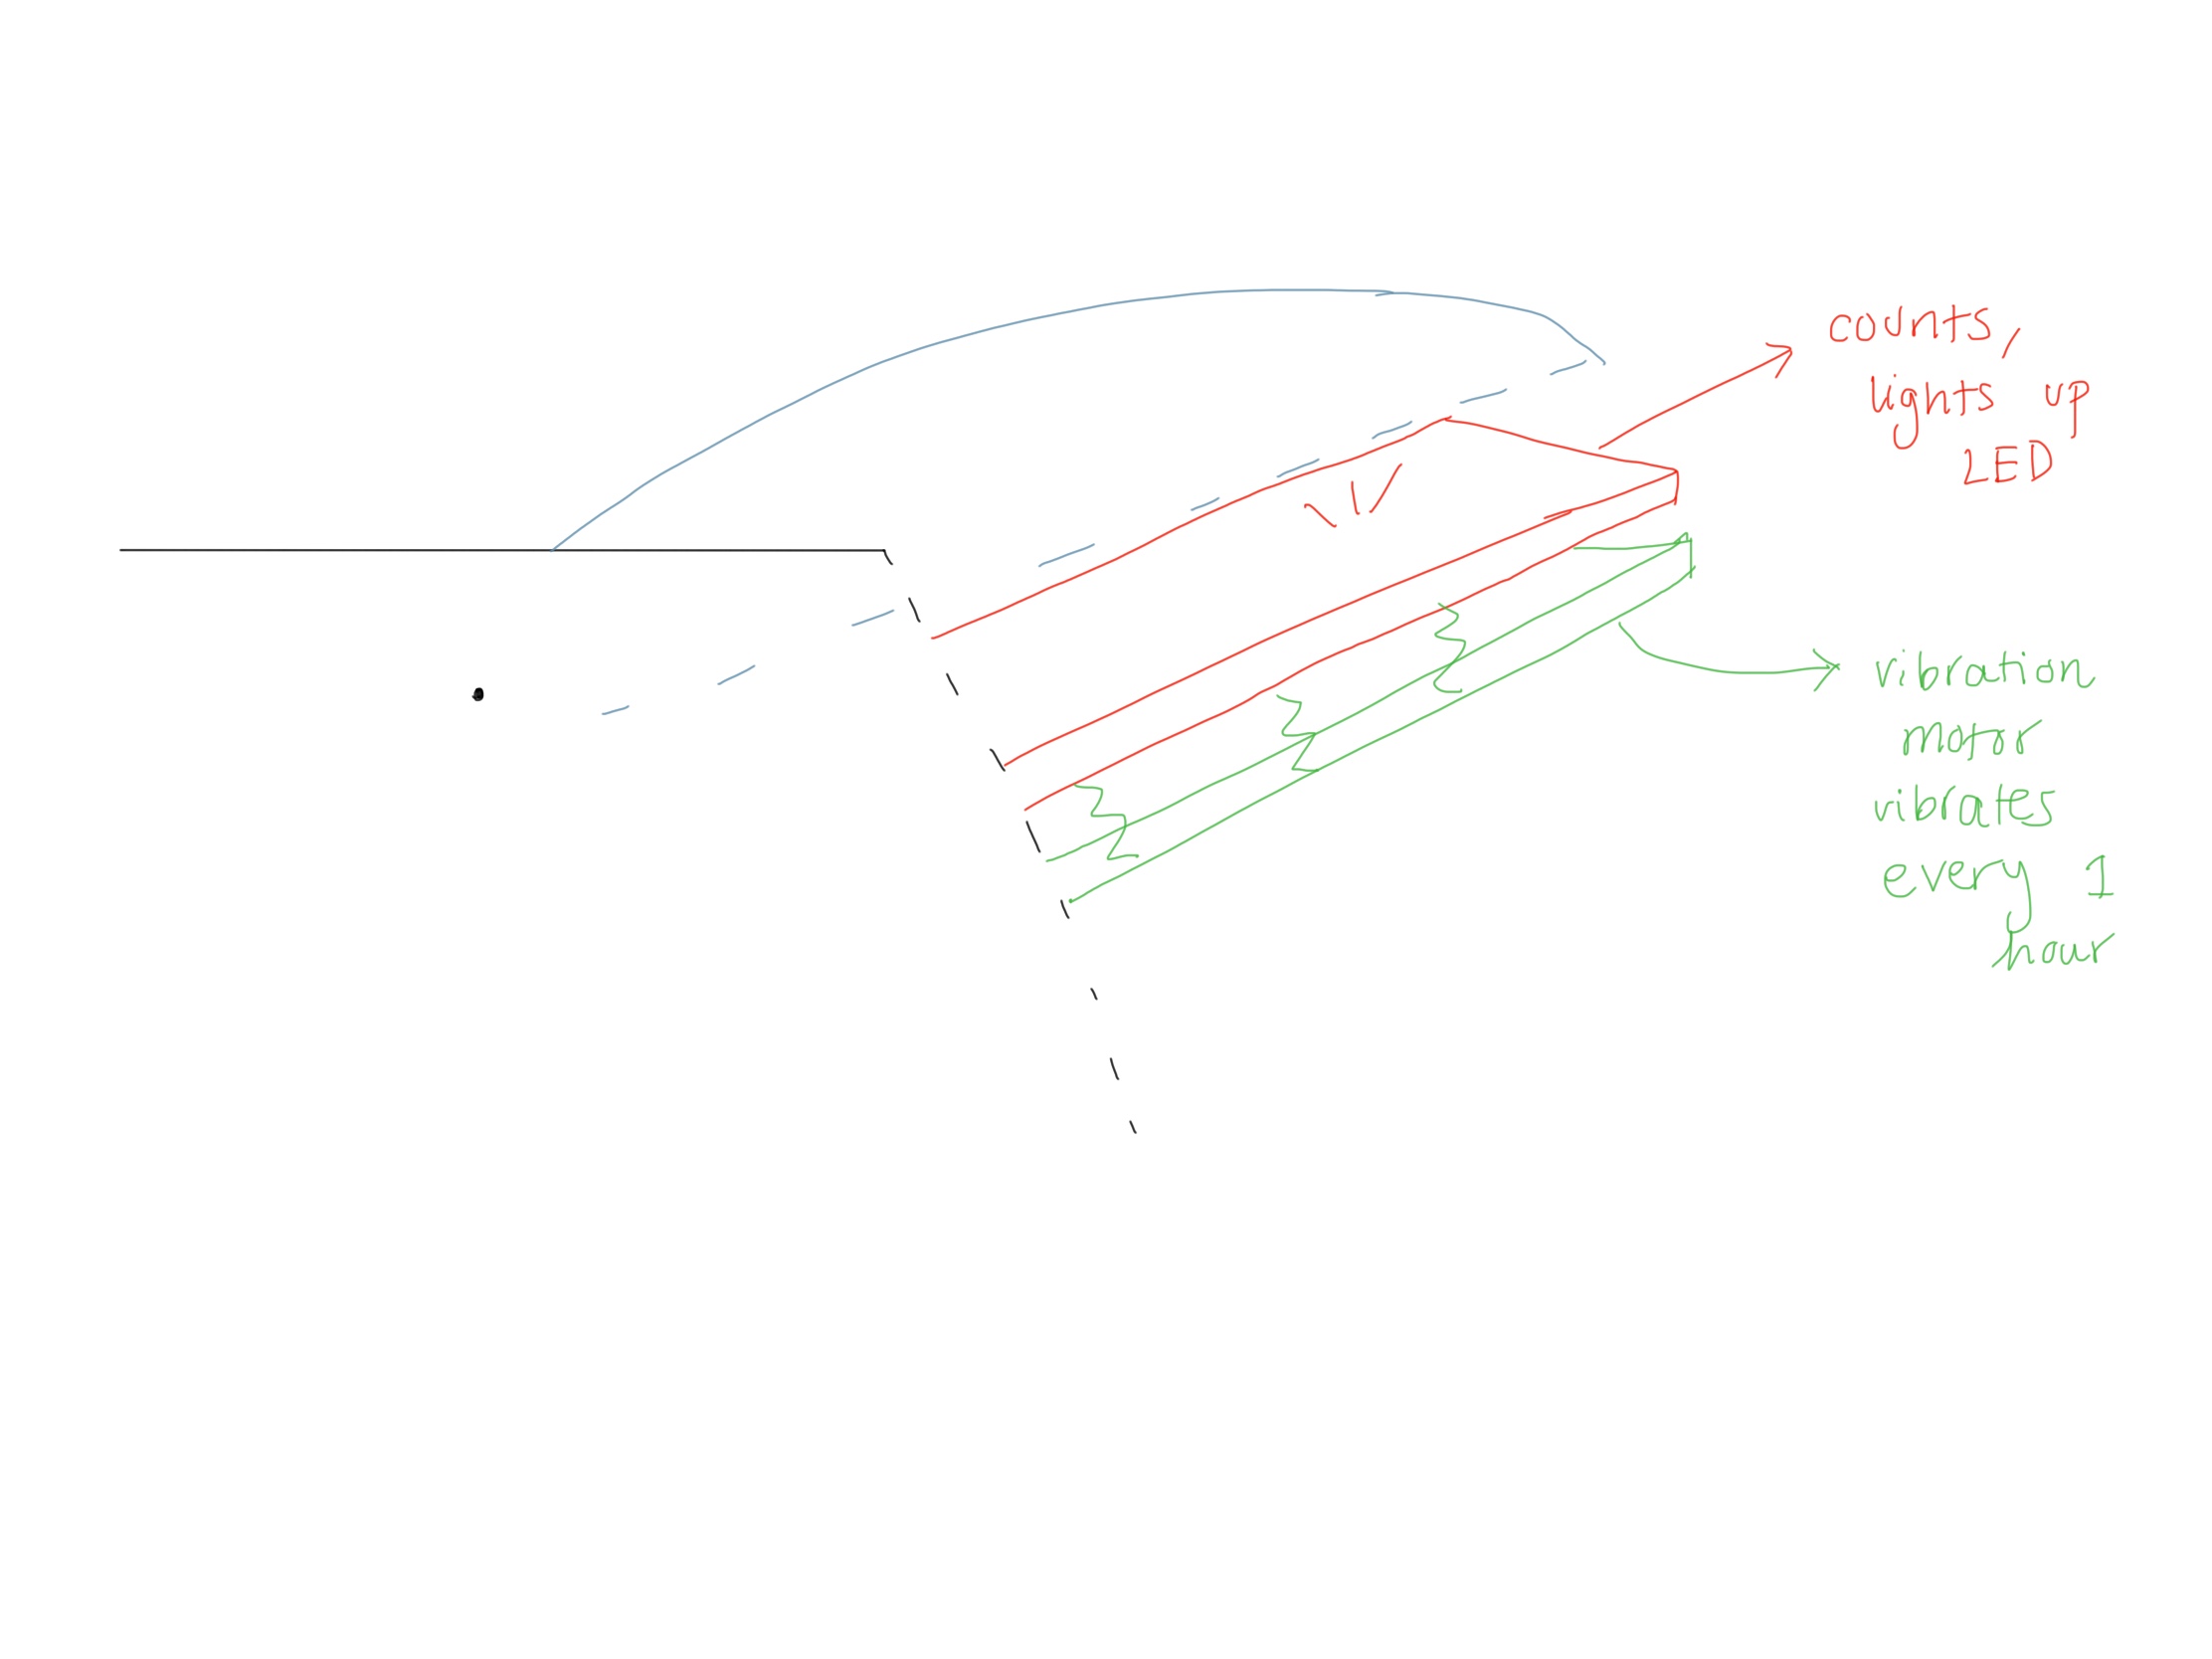 counts,
lights up
LED
\I/
vibration
motor
vibrates
every 1
hour